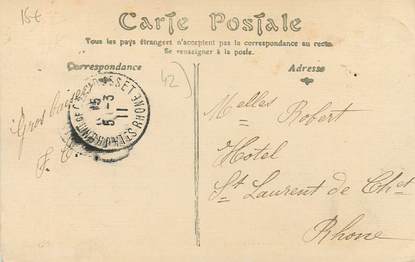 15€
Carte Postale
Tous les pays étrangers n'acceptent pas la correspondance au recto
Se renseigner à la poste.
Correspondance
Adresse
42
Gros baisers
15
5-3
11
Melles Robert
Hôtel
St Laurent de Chet
Rhône